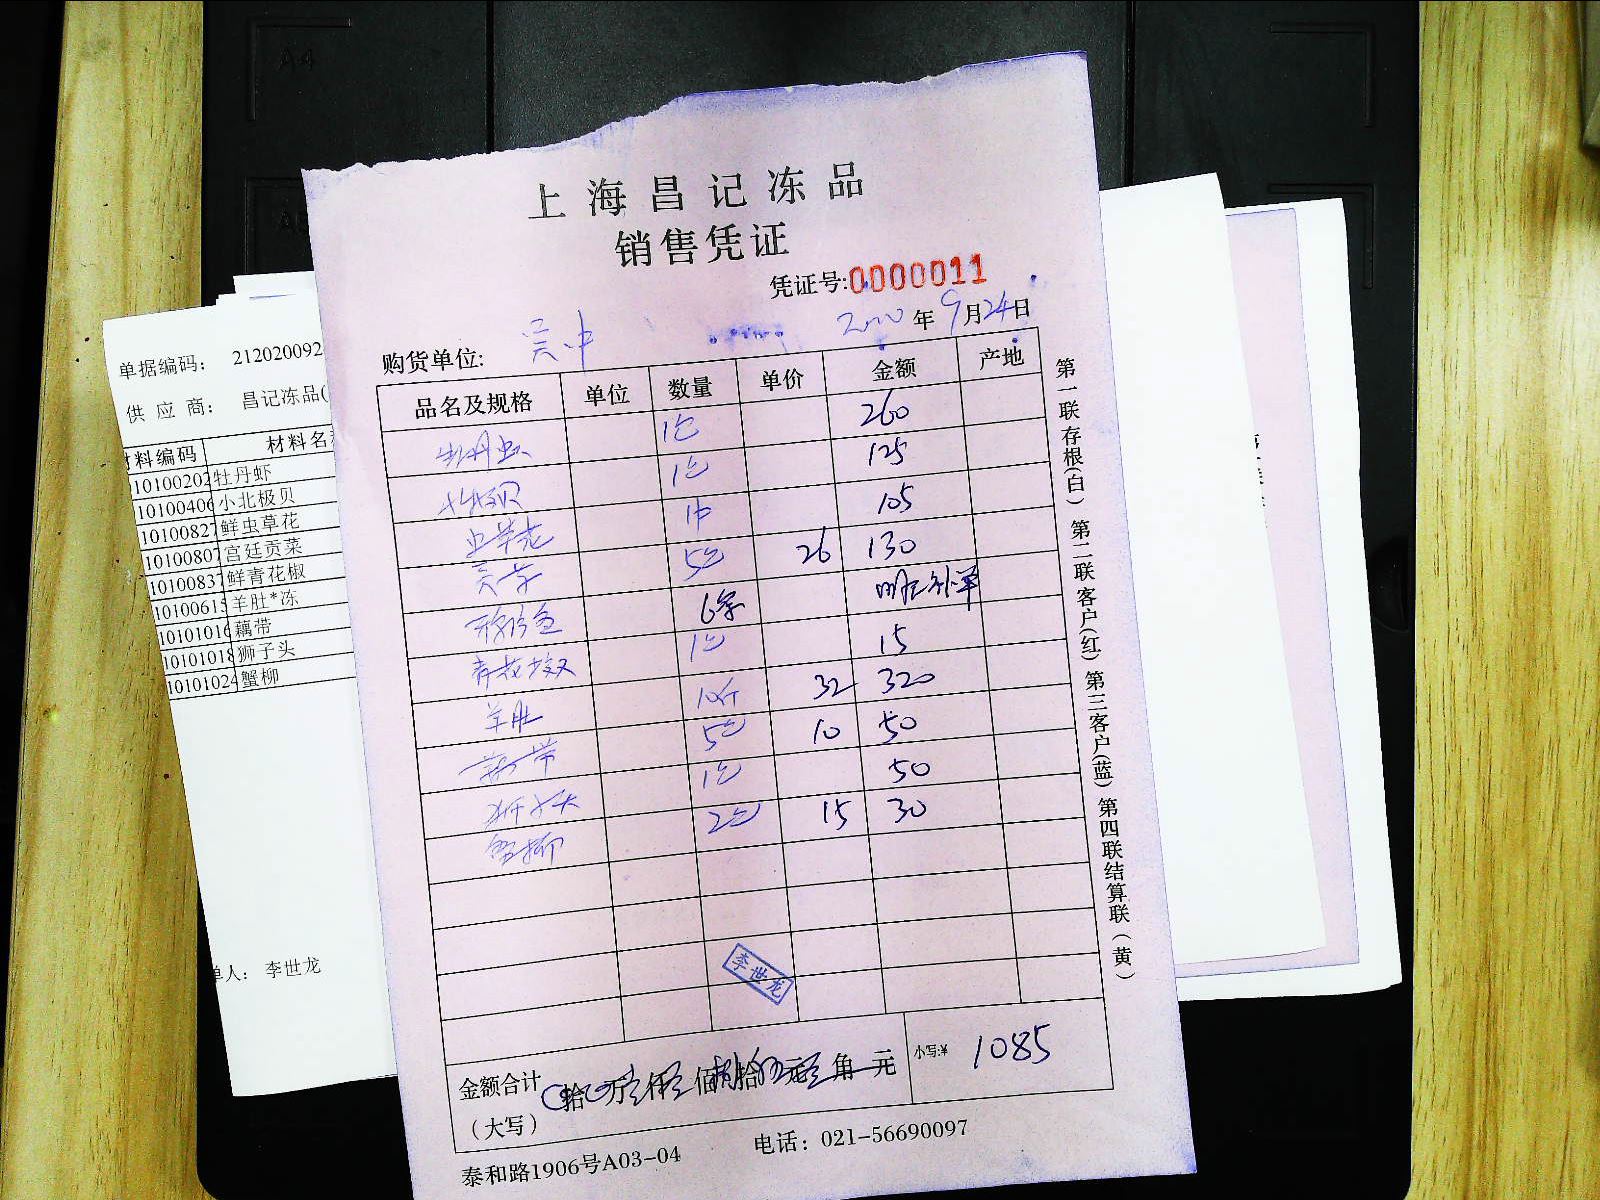 上海昌记冻品
销售凭证
凭证号:0000011
年9月24日
购货单位: 吴中
品名及规格 单位 数量 单价 金额 产地
牡丹虾 1包 260
北极贝 1包 125
虫草花 1件 105
贡菜 5包 26 130
6条 明后补单
青花椒 1包 15
羊肚 10斤 32 320
藕带 5包 10 50
狮子头 1包 50
蟹柳 2包 15 30
李世龙
金额合计 拾 万 仟 佰 拾 元 角 元
(大写)
小写:¥ 1085
泰和路1906号A03-04 电话: 021-56690097
第一联存根(白) 第二联客户(红) 第三客户(蓝) 第四联结算联(黄)
单据编码: 212020092
供应商: 昌记冻品(
材料编码 材料名
10100202 牡丹虾
10100406 小北极贝
10100827 鲜虫草花
10100807 宫廷贡菜
10100837 鲜青花椒
10100615 羊肚*冻
10101016 藕带
10101018 狮子头
10101024 蟹柳
单人: 李世龙
A4